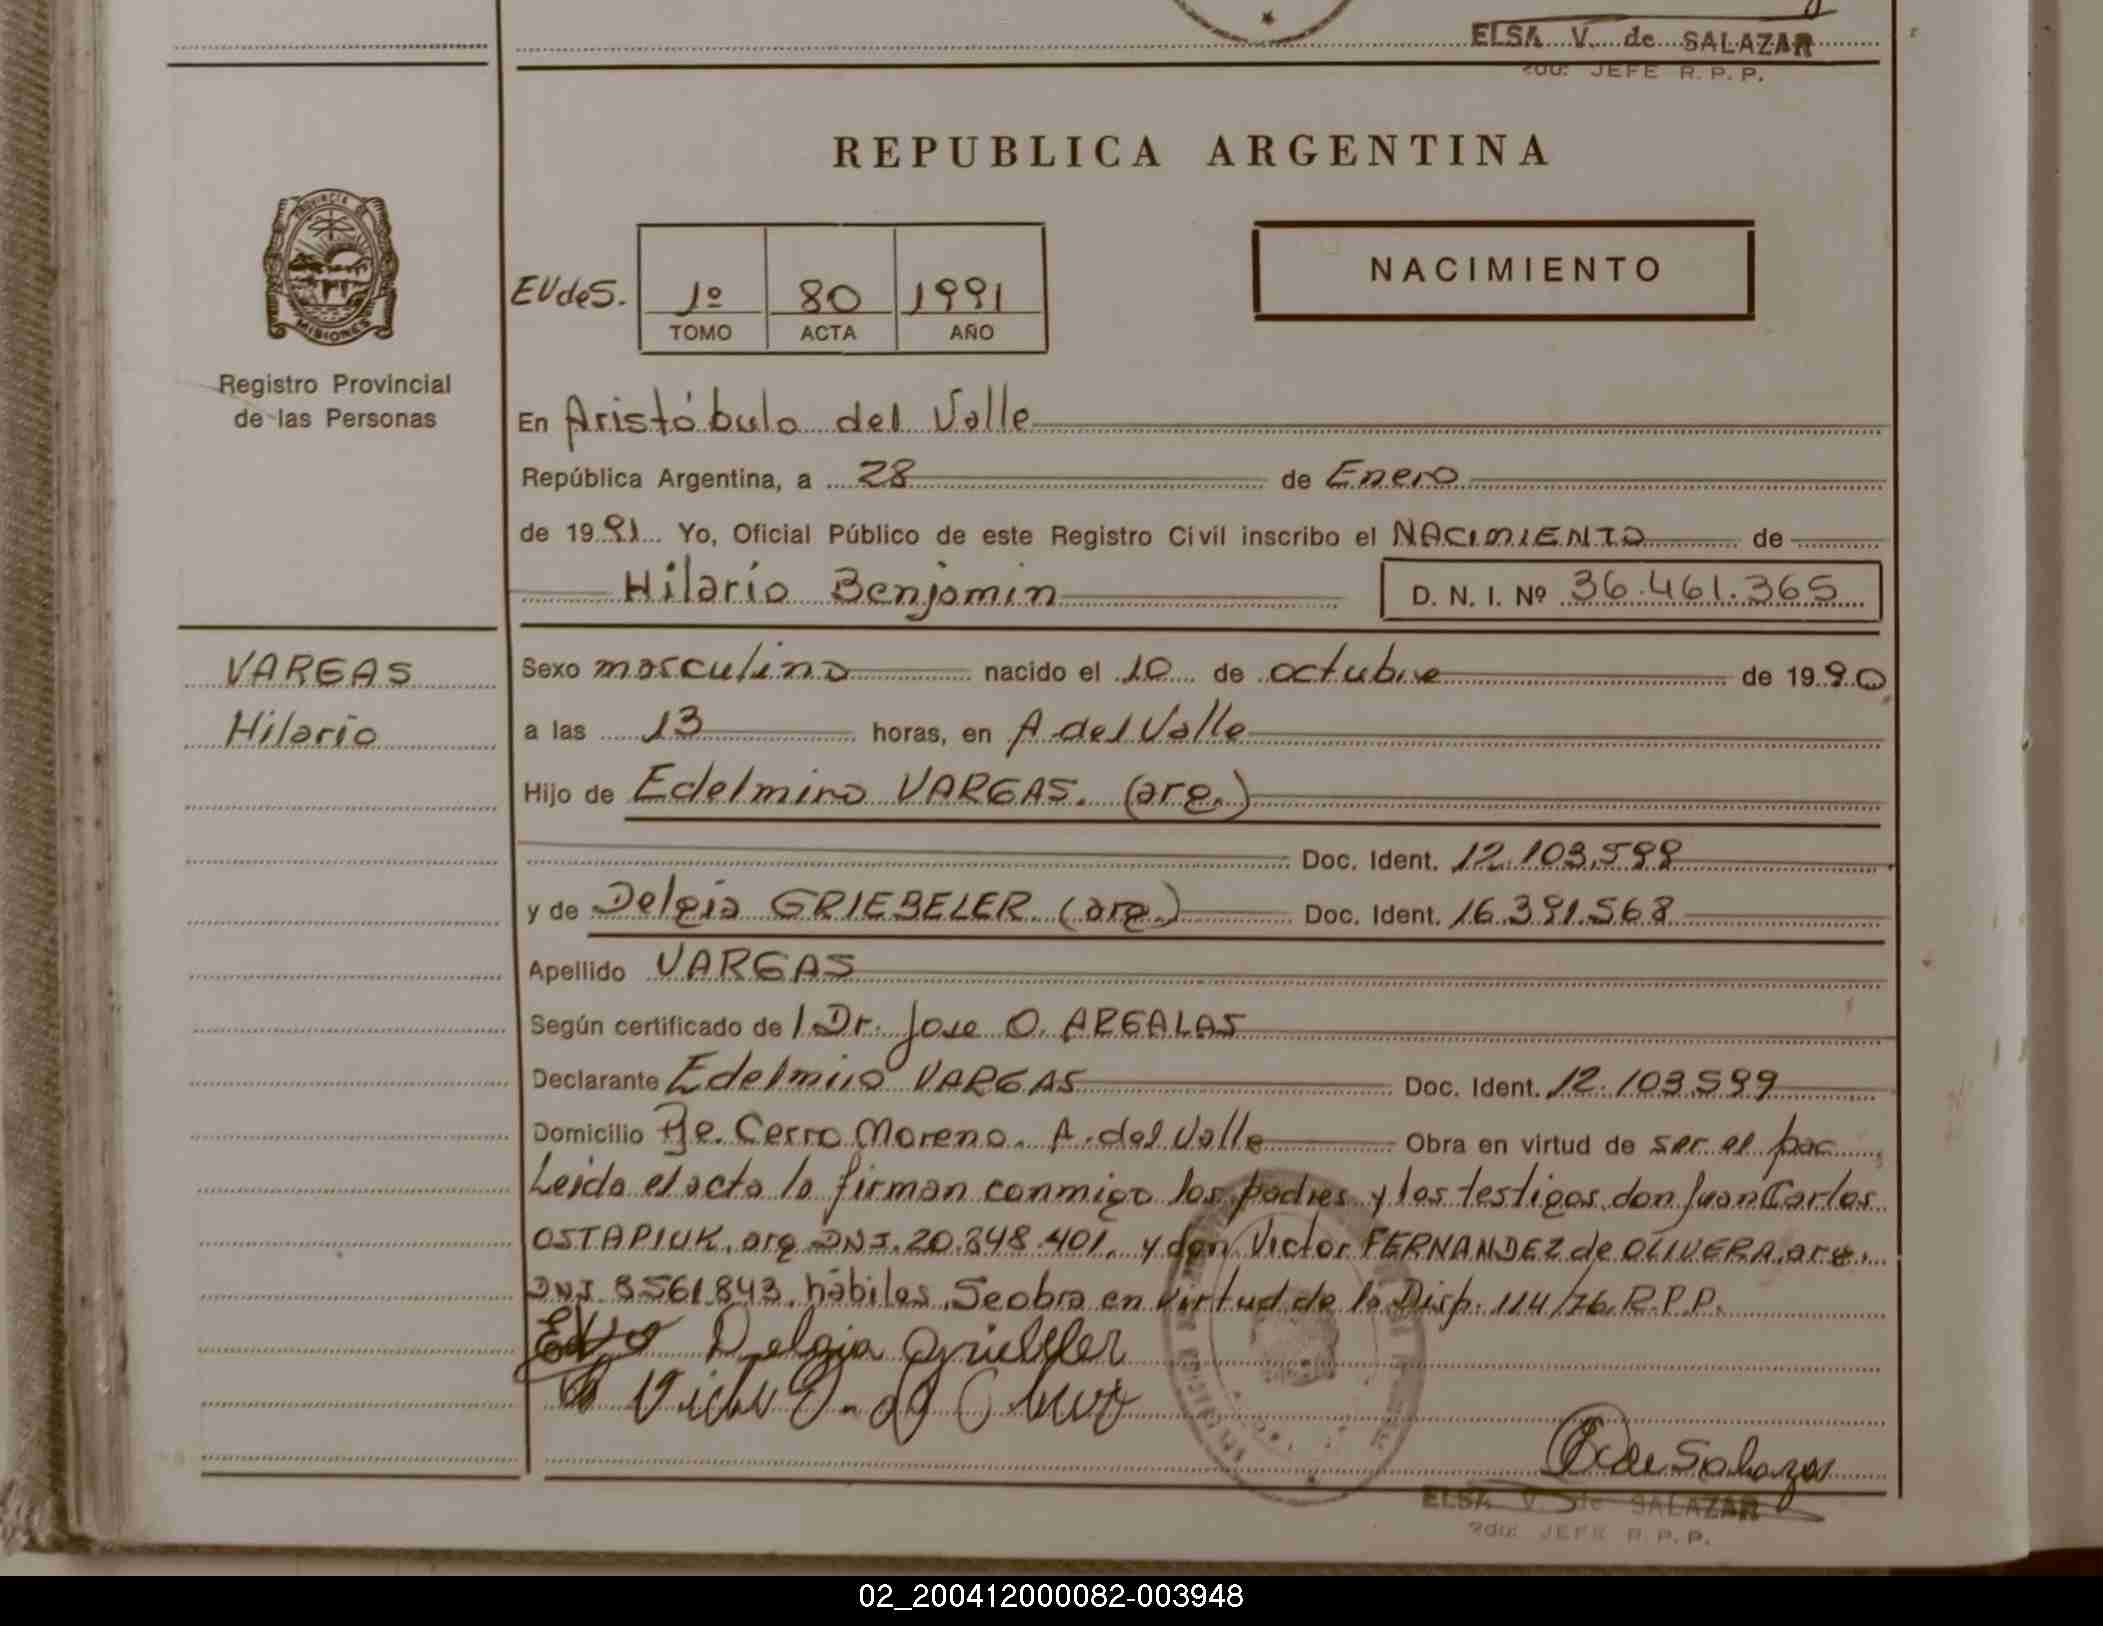 ELSA V. de SALAZAR
JEFE R. P. P.
REPUBLICA ARGENTINA
PROVINCIA DE
MISIONES
Registro Provincial
de las Personas
EVdeS.
1º 80 1991
TOMO ACTA AÑO
NACIMIENTO
En Aristóbulo del Valle
República Argentina, a 28 de Enero
de 1991 Yo, Oficial Público de este Registro Civil inscribo el NACIMIENTO de
Hilario Benjamin D. N. I. Nº 36.461.365
VARGAS
Hilario
Sexo masculino nacido el 10 de octubre de 1990
a las 13 horas, en A del Valle
Hijo de Edelmiro VARGAS. (arg.)
Doc. Ident. 12.103.599
y de Delgia GRIEBELER (arg.) Doc. Ident. 16.391.568
Apellido VARGAS
Según certificado de l Dr. Jose O. ARGALAS
Declarante Edelmiro VARGAS Doc. Ident. 12.103.599
Domicilio Pje. Cerro Moreno. A. del Valle Obra en virtud de ser el pac
Leida el acta la firman conmigo los padres y los testigos don Juan Carlos
OSTAPIUK, arg DNI. 20.848.401. y don Victor FERNANDEZ de OLIVERA, arg.
DNI 8561.843. hábiles. Se obra en virtud de la Disp. 114/76 R.P.P.
Delgia Griebeler
de Salazar
ELSA V. de SALAZAR
2do. JEFE R. P. P.
02_200412000082-003948